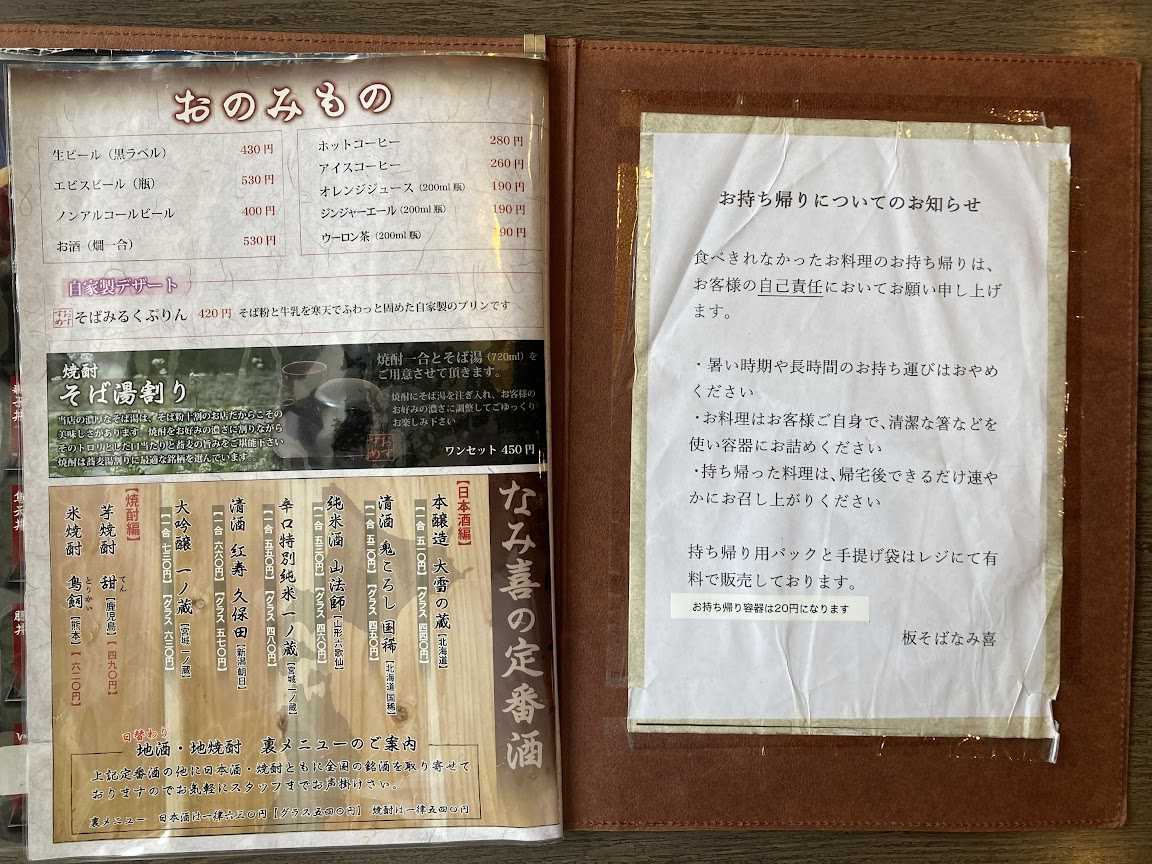 おのみもの
生ビール（黒ラベル） 430円
エビスビール（瓶） 530円
ノンアルコールビール 400円
お酒（燗一合） 530円
ホットコーヒー 280円
アイスコーヒー 260円
オレンジジュース（200ml瓶） 190円
ジンジャーエール（200ml瓶） 190円
ウーロン茶（200ml瓶） 190円
自家製デザート
おすすめ そばみるくぷりん 420円 そば粉と牛乳を寒天でふわっと固めた自家製のプリンです
焼酎
そば湯割り
当店の濃厚なそば湯は、そば粉十割のお店だからこその
美味しさがあります 焼酎をお好みの濃さに割りながら
そのトロリとした口当たりと蕎麦の旨みをご堪能下さい
焼酎は蕎麦湯割りに最適な銘柄を選んでいます
焼酎一合とそば湯（720ml）を
ご用意させて頂きます。
焼酎にそば湯を注ぎ入れ、お客様の
お好みの濃さに調整してごゆっくり
お楽しみ下さい
おすすめ
ワンセット 450円
なみ喜の定番酒
【日本酒編】
本醸造 大雪の蔵［北海道］
【一合 五二〇円】【グラス 四四〇円】
清酒 鬼ころし 国稀［北海道 国稀］
【一合 五一〇円】【グラス 四五〇円】
純米酒 山法師［山形 六歌仙］
【一合 五三〇円】【グラス 四六〇円】
辛口特別純米 一ノ蔵［宮城 一ノ蔵］
【一合 五五〇円】【グラス 四八〇円】
清酒 紅寿 久保田［新潟 朝日］
【一合 六六〇円】【グラス 五七〇円】
大吟醸 一ノ蔵［宮城 一ノ蔵］
【一合 七三〇円】【グラス 六三〇円】
【焼酎編】
芋焼酎 甜［鹿児島］【四九〇円】
てん
米焼酎 鳥飼［熊本］【六二〇円】
とりかい
日替わり
地酒・地焼酎 裏メニューのご案内
上記定番酒の他に日本酒・焼酎ともに全国の銘酒を取り寄せて
おりますのでお気軽にスタッフまでお声掛けさい。
裏メニュー 日本酒は一律六三〇円【グラス五四〇円】 焼酎は一律五四〇円
お持ち帰りについてのお知らせ
食べきれなかったお料理のお持ち帰りは、
お客様の自己責任においてお願い申し上げ
ます。
・暑い時期や長時間のお持ち運びはおやめ
ください
・お料理はお客様ご自身で、清潔な箸などを
使い容器にお詰めください
・持ち帰った料理は、帰宅後できるだけ速や
かにお召し上がりください
持ち帰り用パックと手提げ袋はレジにて有
料で販売しております。
お持ち帰り容器は20円になります
板そばなみ喜